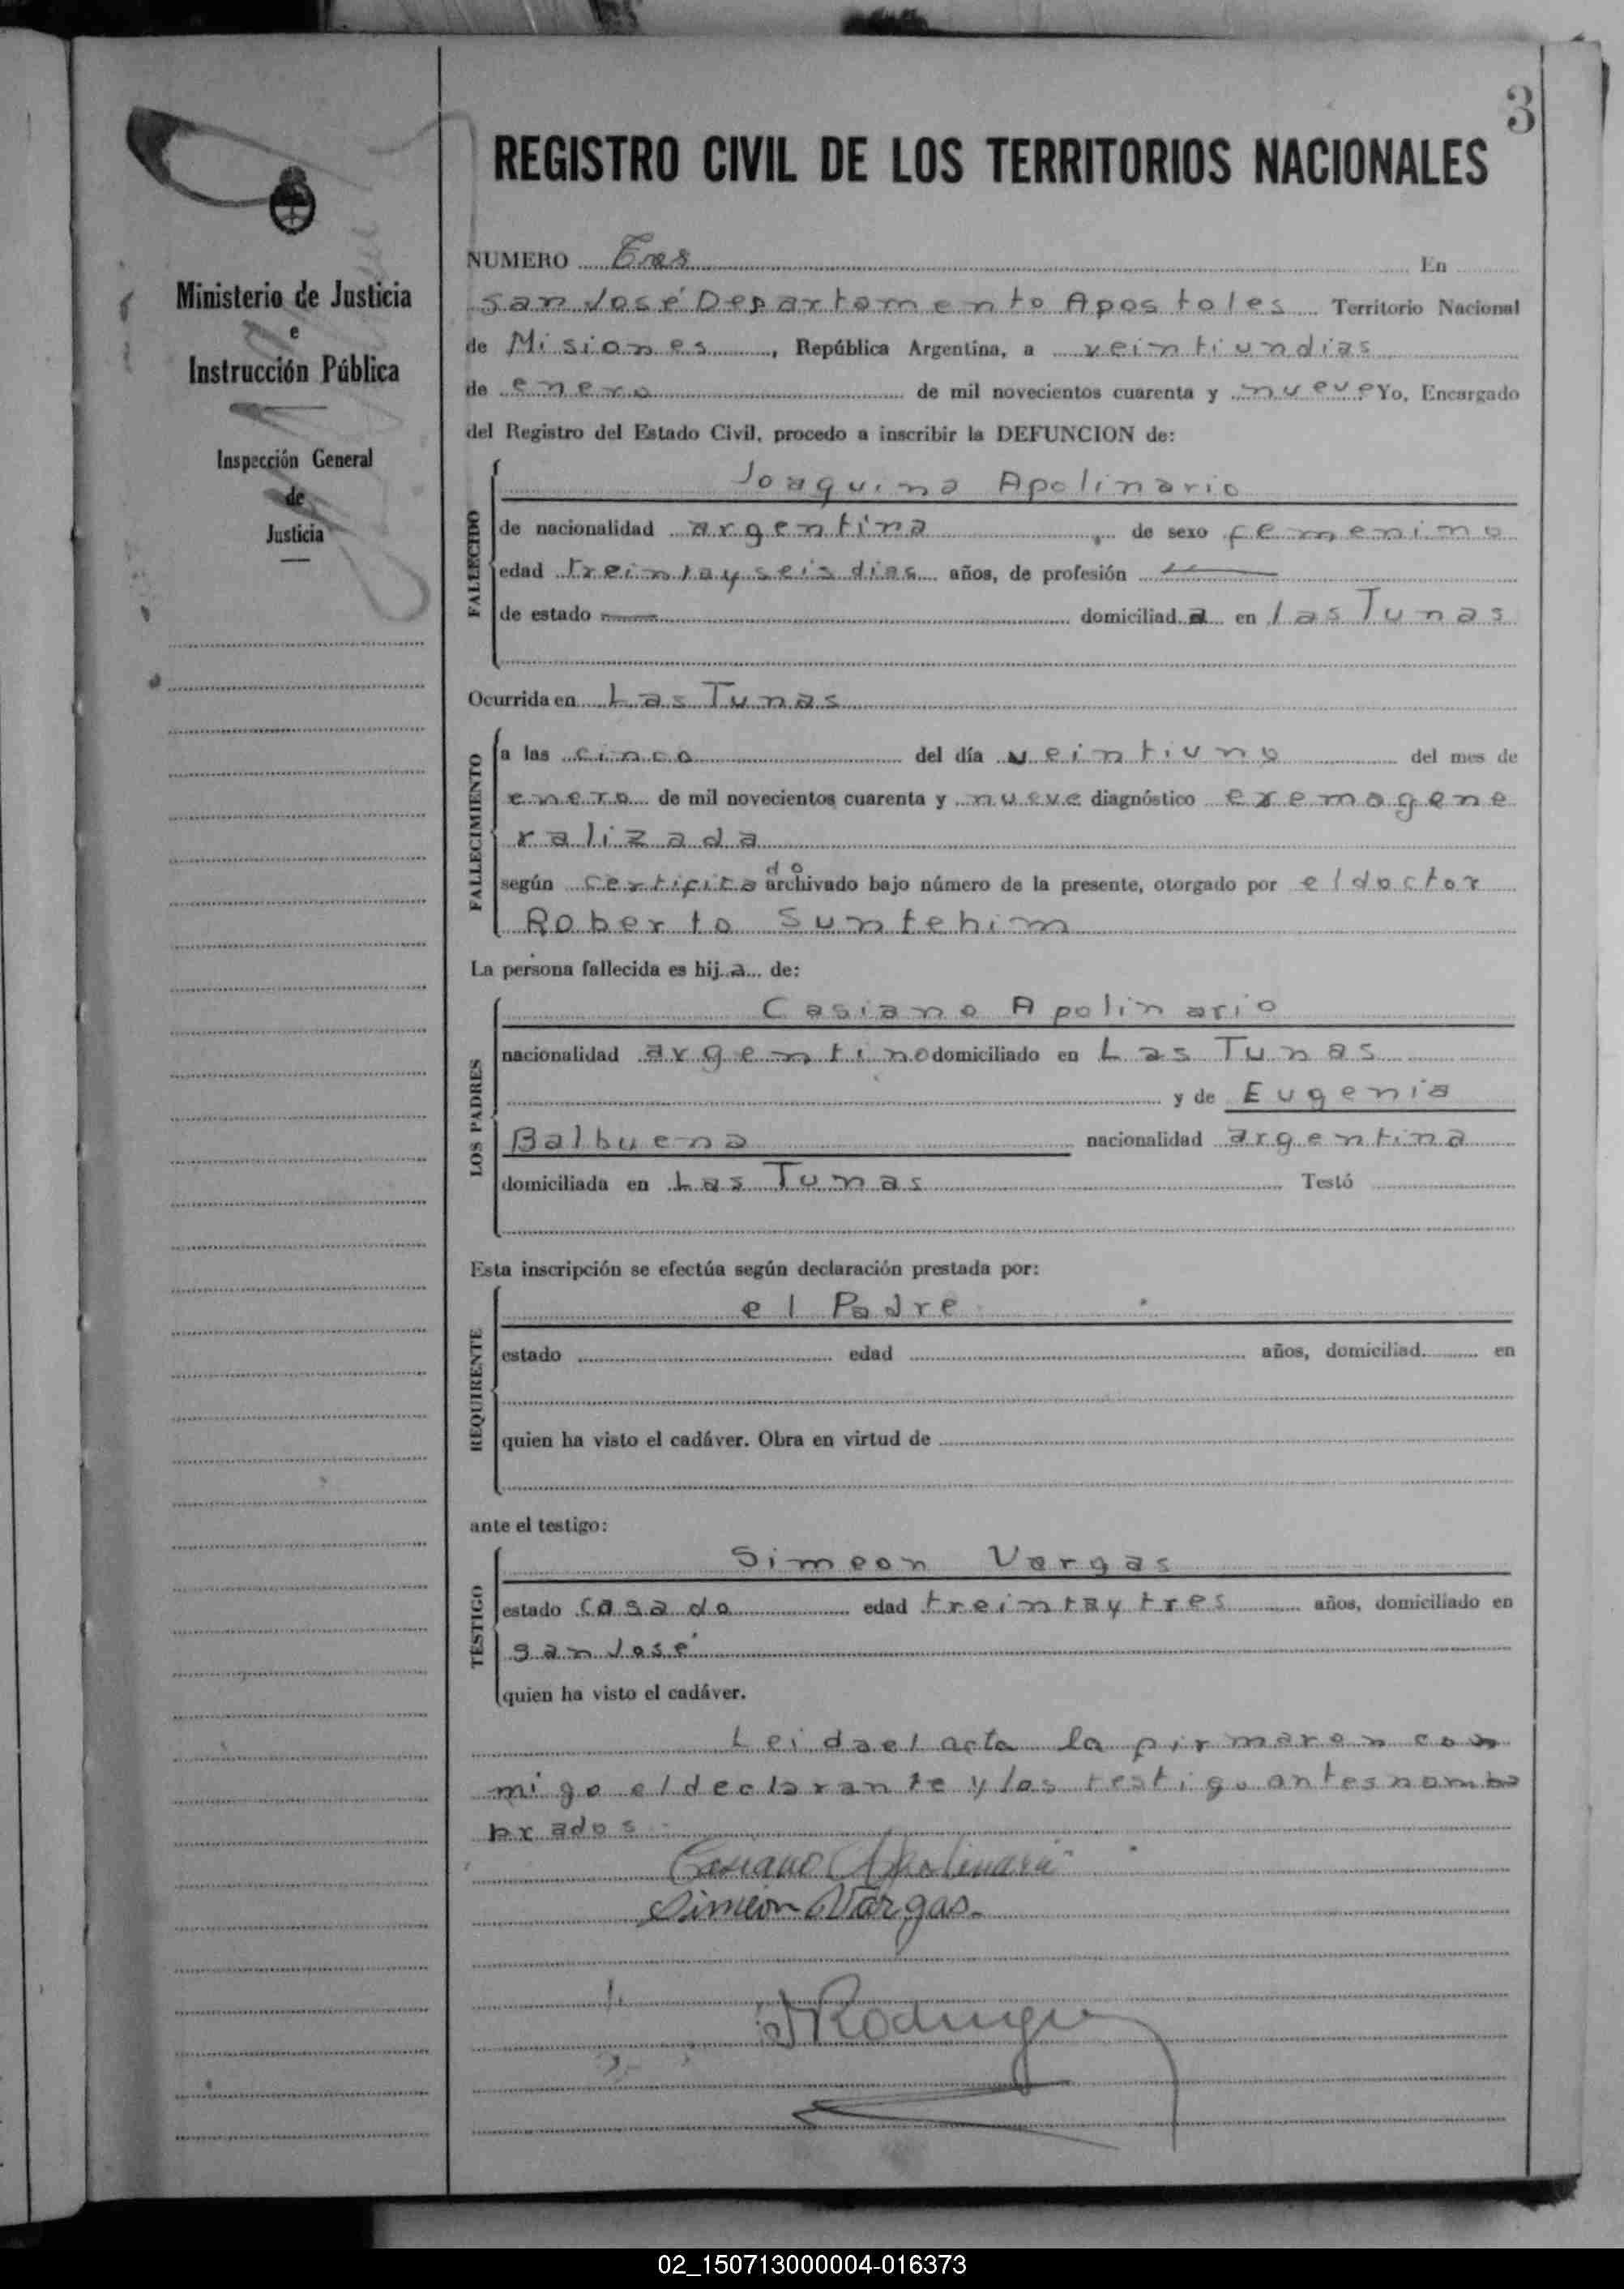 3
REGISTRO CIVIL DE LOS TERRITORIOS NACIONALES
Ministerio de Justicia
e
Instrucción Pública
Inspección General
de
Justicia
NUMERO Tres En
San José Departamento Apostoles Territorio Nacional
de Misiones, República Argentina, a veintiun dias
de enero de mil novecientos cuarenta y nueve Yo, Encargado
del Registro del Estado Civil, procedo a inscribir la DEFUNCION de:
FALLECIDO
Joaquina Apolinario
de nacionalidad argentina, de sexo femenino
edad treinta y seis dias años, de profesión
de estado domiciliada en las Tunas
Ocurrida en Las Tunas
FALLECIMIENTO
a las cinco del día veintiuno del mes de
enero de mil novecientos cuarenta y nueve diagnóstico exemagene
ralizada
do
según certifica archivado bajo número de la presente, otorgado por el doctor
Roberto Suntehim
La persona fallecida es hija de:
LOS PADRES
Casiano Apolinario
nacionalidad argentino domiciliado en Las Tunas
y de Eugenia
Balbuena nacionalidad argentina
domiciliada en Las Tunas Testó
Esta inscripción se efectúa según declaración prestada por:
REQUIRENTE
el Padre
estado edad años, domiciliad en
quien ha visto el cadáver. Obra en virtud de
ante el testigo:
TESTIGO
Simeon Vargas
estado casado edad treinta y tres años, domiciliado en
San José
quien ha visto el cadáver.
Leida el acta la firmaron con
migo el declarante y los testigo antes nom
brados
Casiano Apolinario
Simeon Vargas.
Rodriguez
02_150713000004-016373